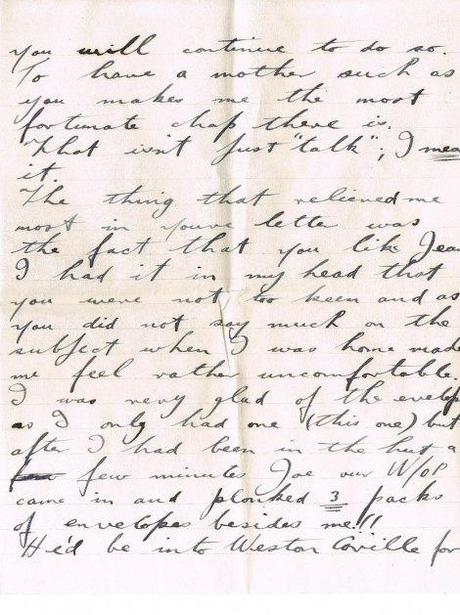 you will continue to do so.
To have a mother such as
you makes me the most
fortunate chap there is.
That isn't just "talk"; I mea
it.
The thing that relieved me
most in youre letter was
the fact that you like Jean
I had it in my head that
you were not too keen and as
you did not say much on the
subject when I was home made
me feel rather uncomfortable.
I was very glad of the envelop
as I only had one (this one) but
after I had been in the hut a
few minutes Joe our W/OP
came in and plonked 3 packs
of envelopes besides me!!
He'd be into Weston Coville for